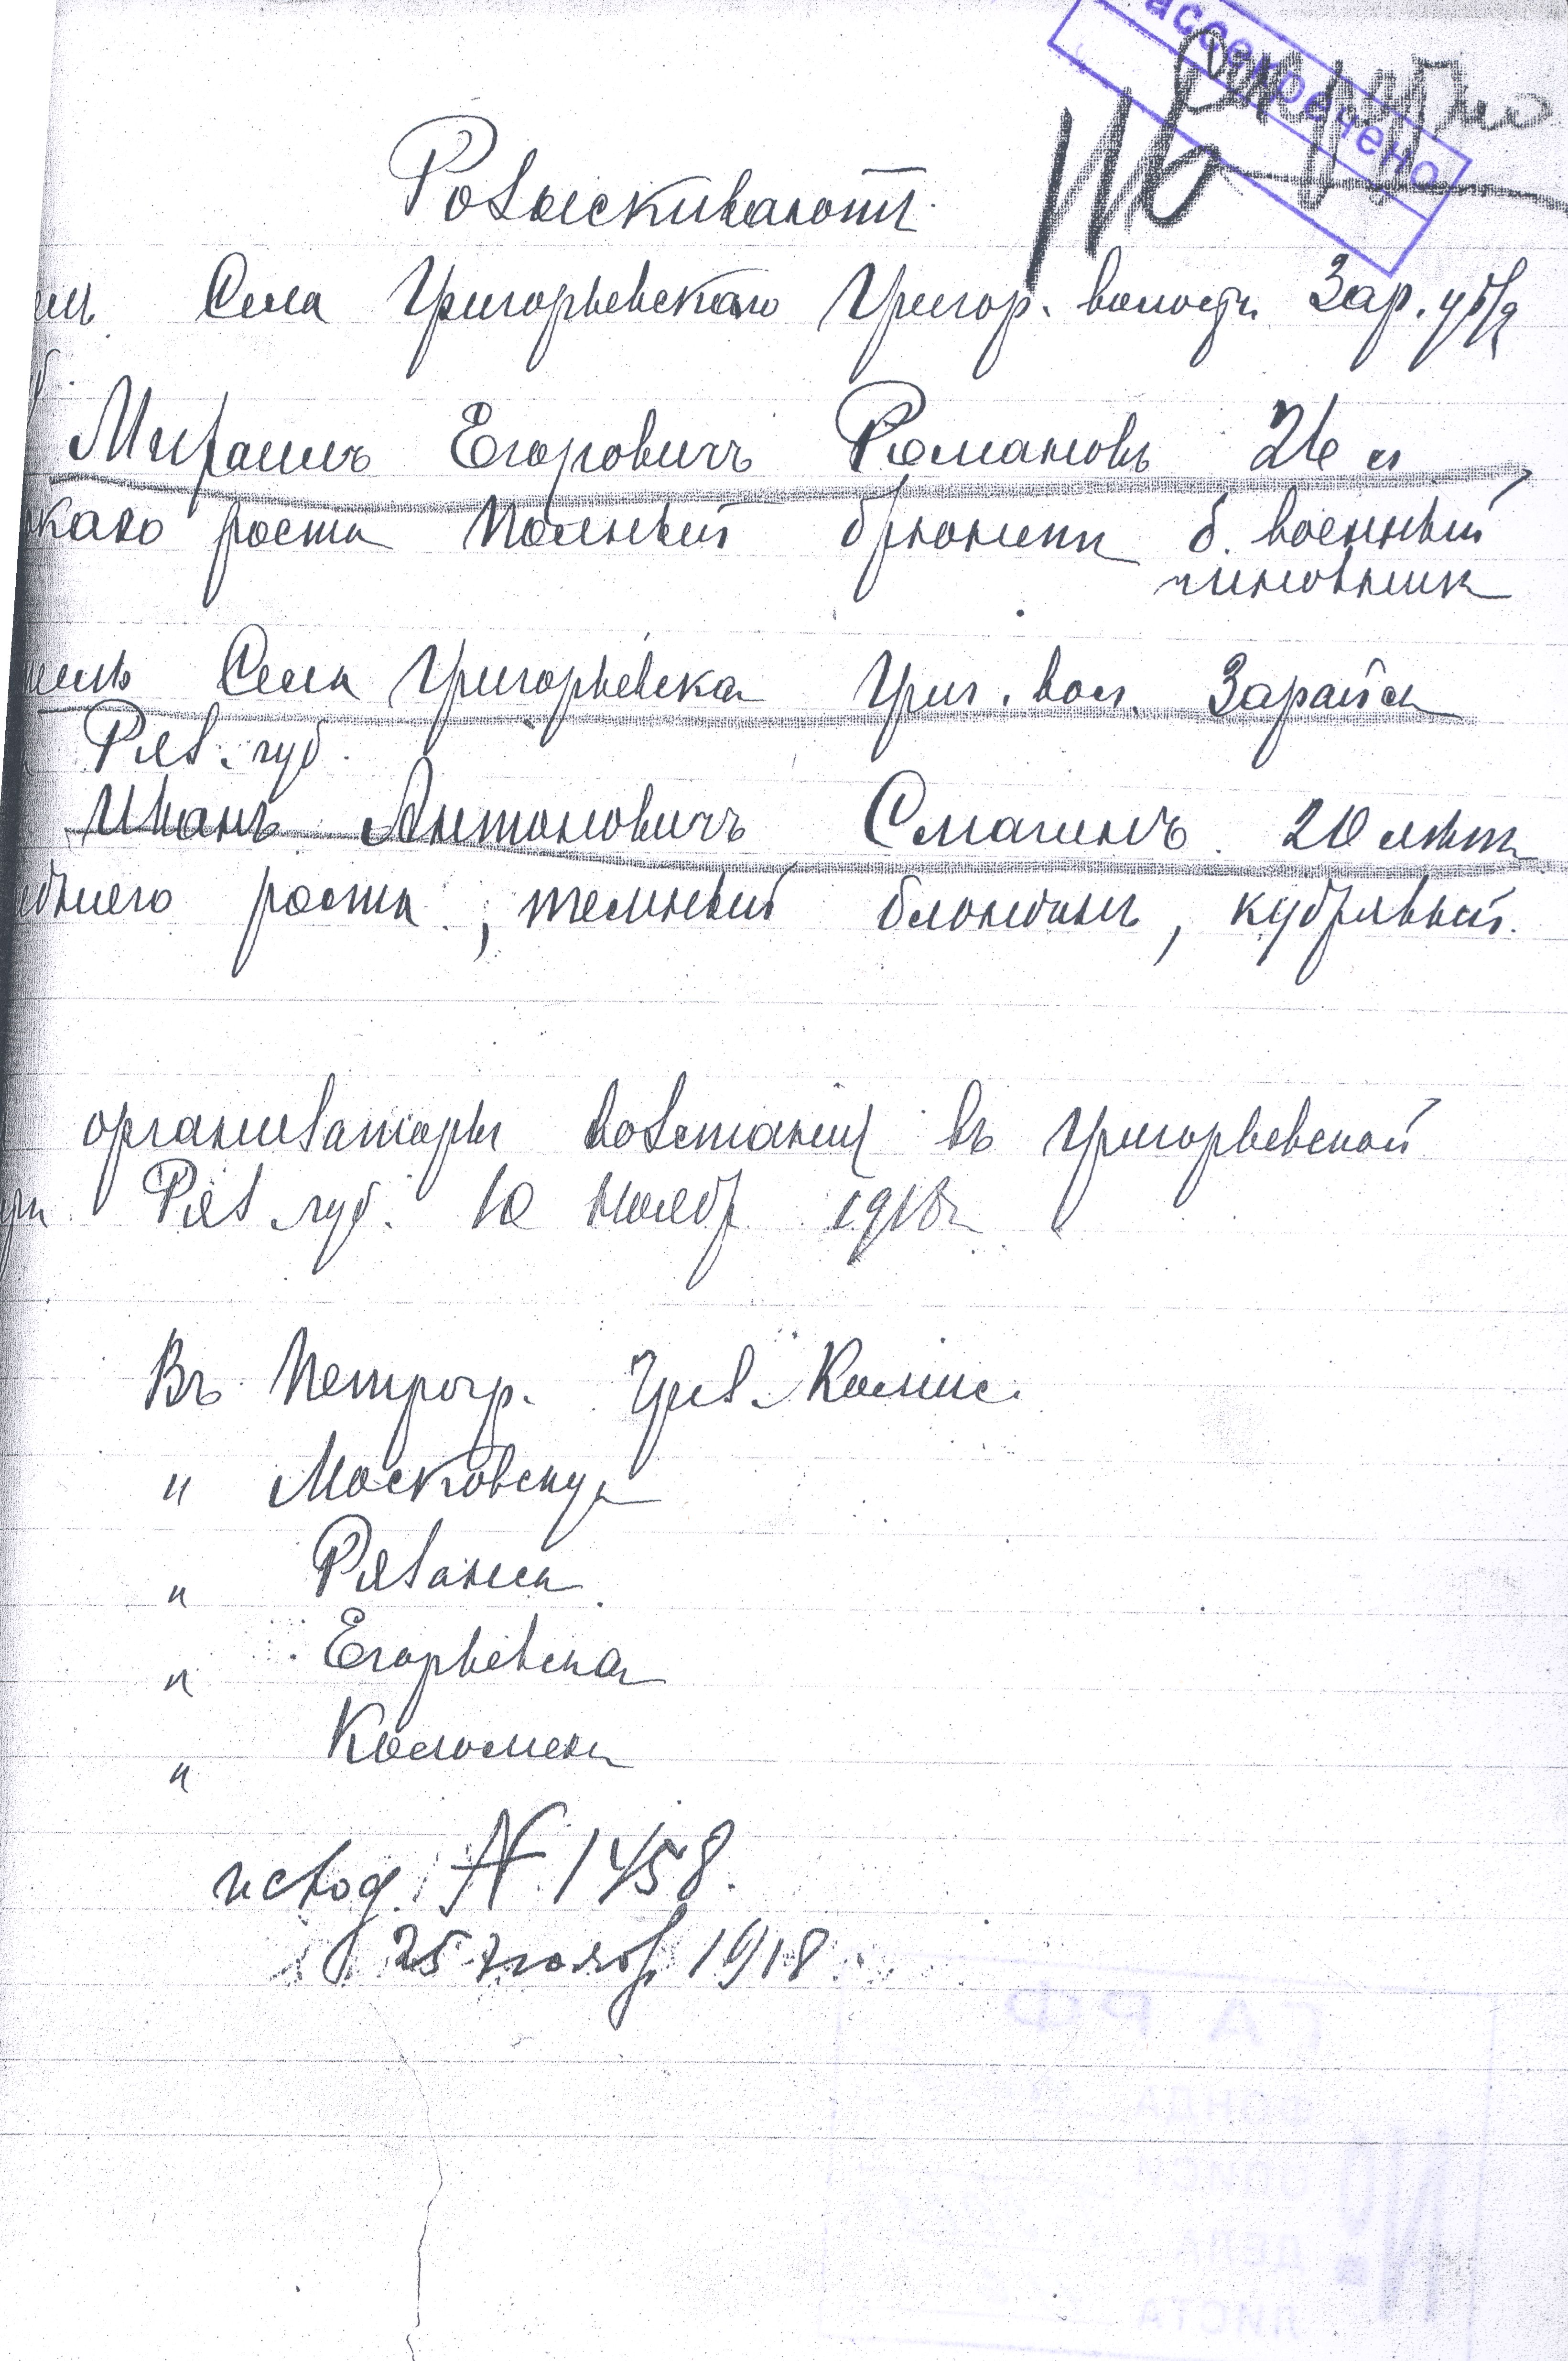 рассекречено
Розыскиваются
Села Григорьевскаго Григор. волости Зар. у.
Михаилъ Егоровичъ Романовъ 26 л
окаго роста полный брюнетъ б. военный
чиновник
тель Села Григорьевска Григ. вол. Зарайск
Ряз. губ.
Иванъ Антоновичъ Смагинъ 20 лѣтъ
еднего роста, темный блондинъ, кудрявый.
организаторы возстания въ Григорьевской
Ряз губ. 10 Ноябр 1918г
Въ Петрогр. Чрез. Комис.
" Московскую
" Рязанск
" Егорьевска
" Коломенск
исход. № 1458.
25 ноябр 1918
ГА РФ
ФОНДА
ОПИСИ
ДЕЛА
ЛИСТА